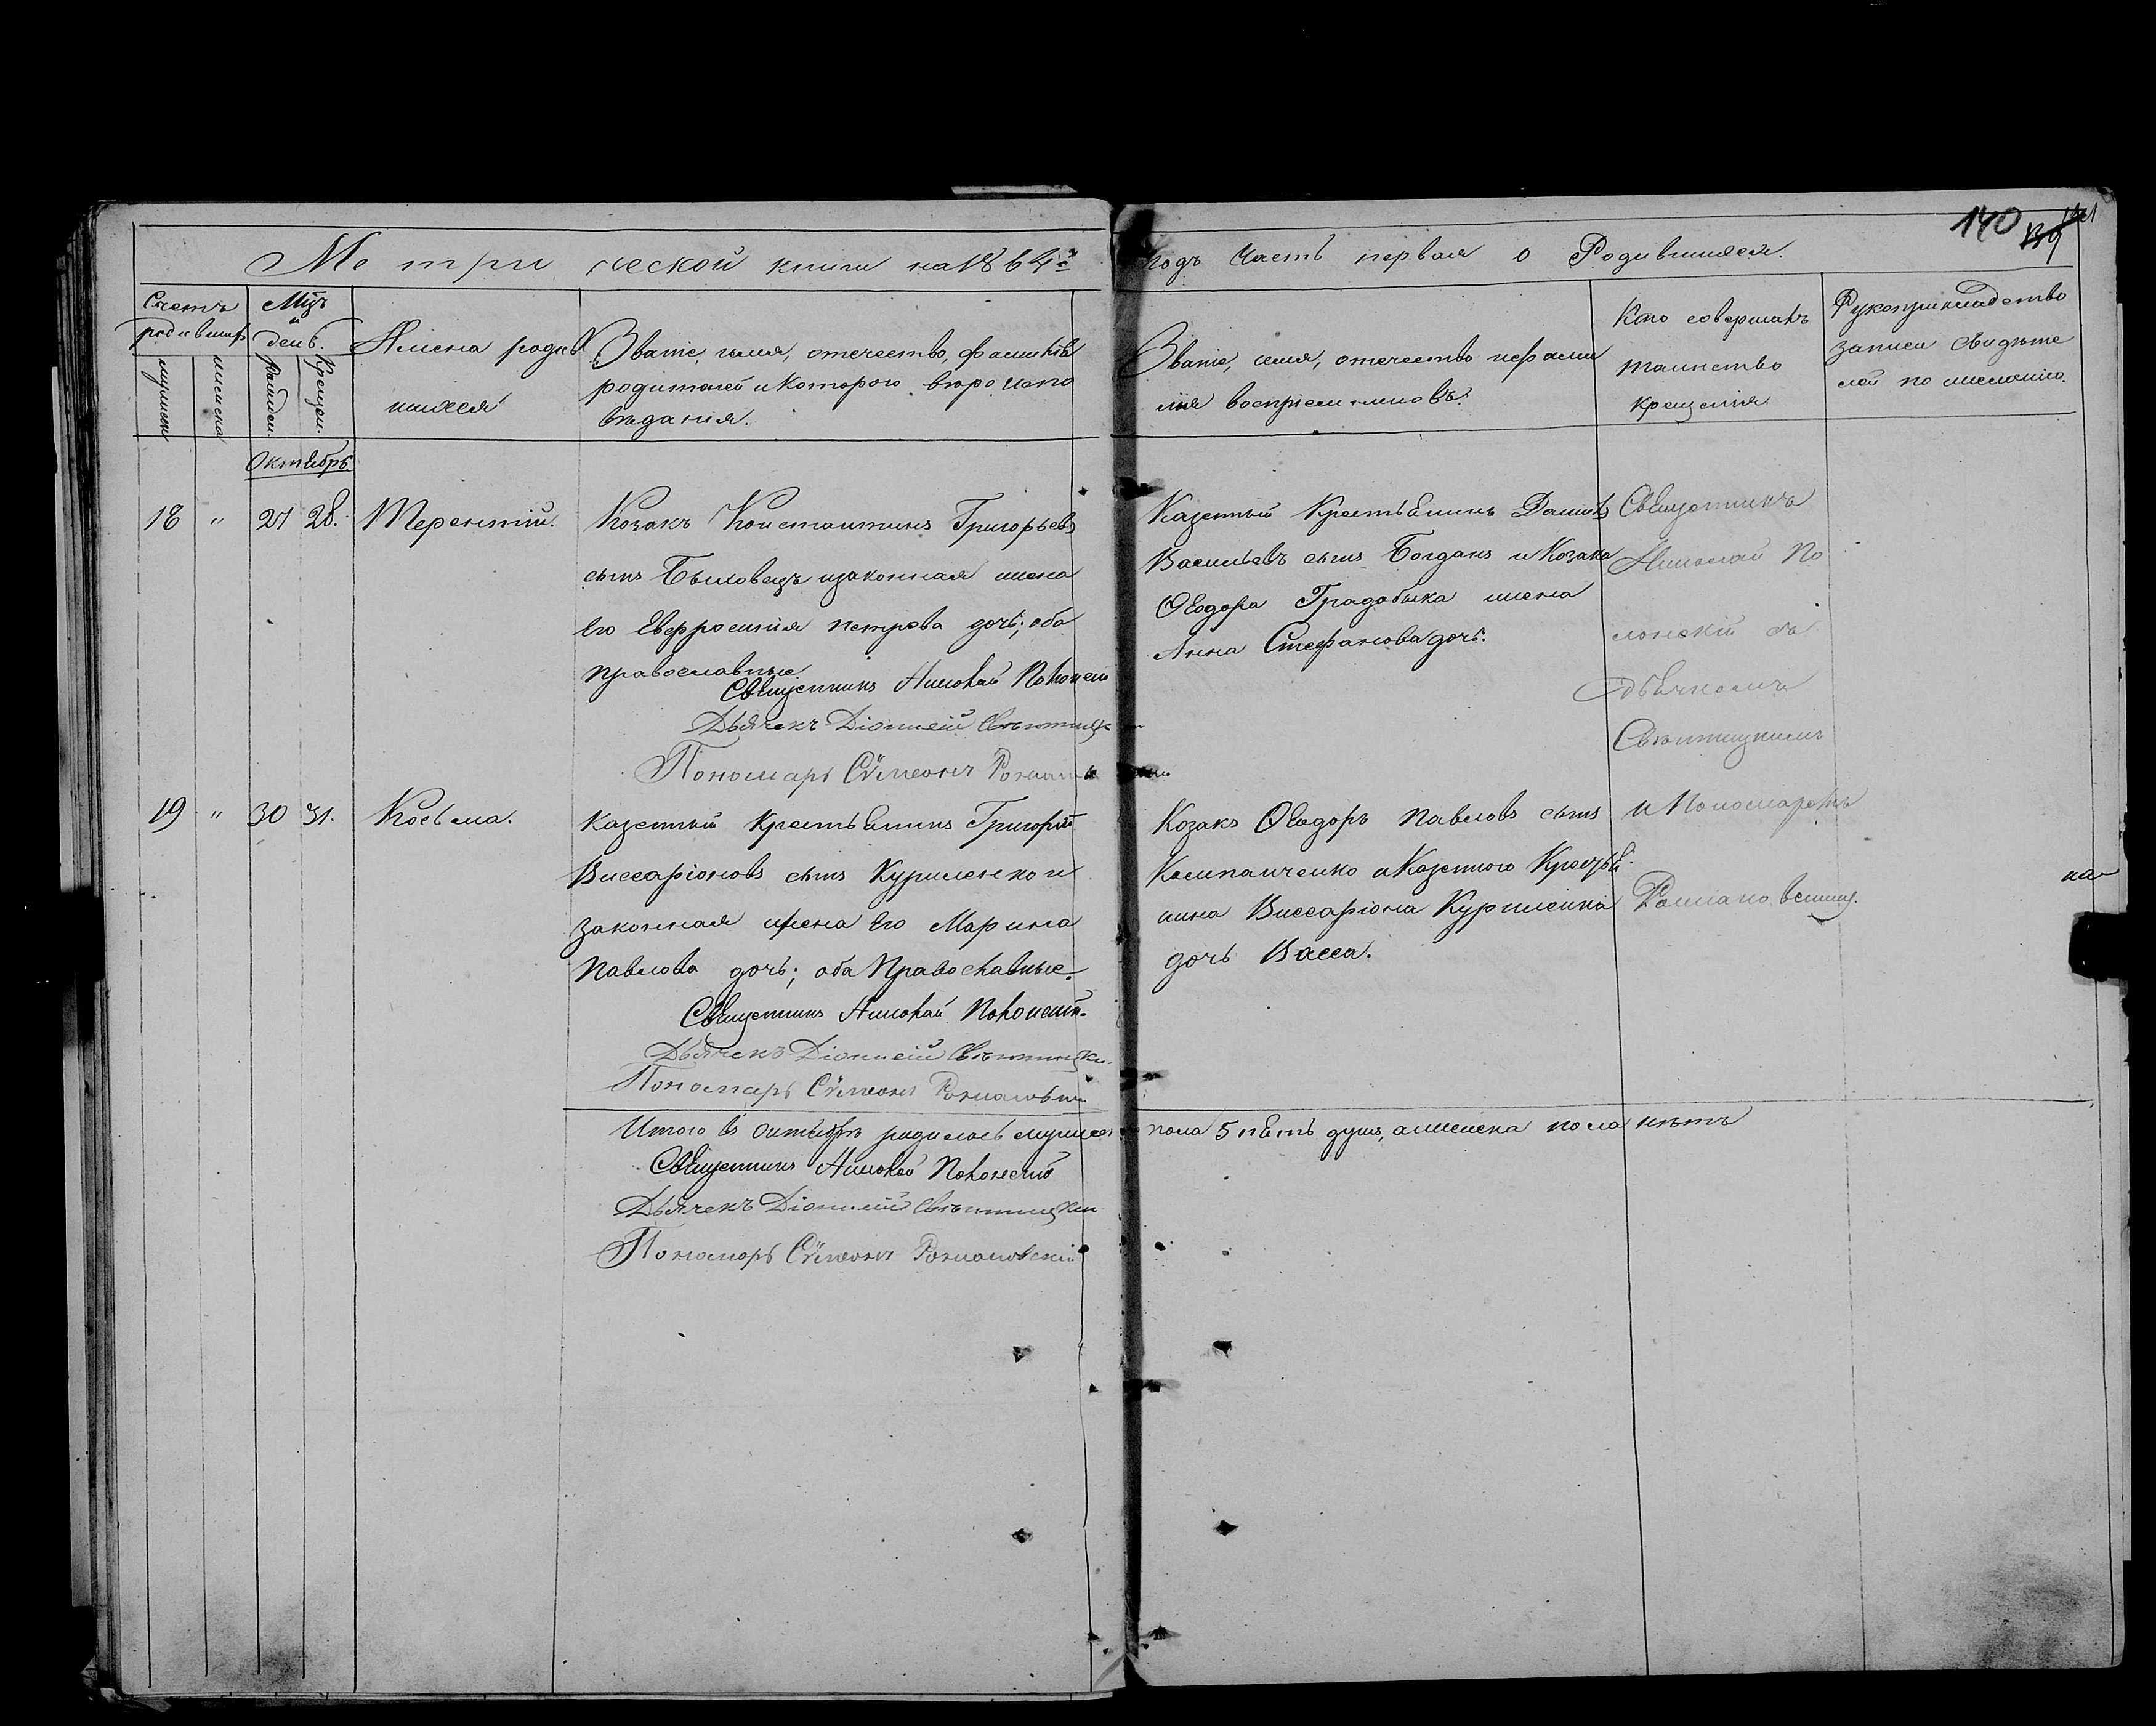 140 139 141
Метрической книги на 1864й годъ Часть первая о Родившихся.
Счетъ родившихъ
мужеска
женска
Мцъ и день.
Рожден.
Крещен.
Имена родив
шихся
Званіе, имя, отечество, фамилія
родителей и которого вѣроиспо
вѣданія.
Званіе, имя, отечество и фами
лія воспріемниковъ.
Кто совершалъ
таинство
крещенія
Рукоприкладство
записи свидѣте
лей по желанію.
Октябрь
18 " 27 28. Терентій.
Козакъ Константинъ Григорьевъ
сынъ Быховецъ и законная жена
его Евфросинія Петрова дочь; оба
православные.
Священникъ Николай Полонскій
Дьячекъ Діонисій Свѣтницкій
Пономарь Сѵмеонъ Романовскій
Казенный Крестьянинъ Даніилъ
Васильевъ сынъ Богданъ и Козака
Ѳеодора Градобыка жена
Анна Стефанова дочь.
Священникъ
Николай По
лонскій съ
Дьячкомъ
Свѣтницкимъ
и Пономаремъ
Романовскимъ.
19 " 30 31. Косьма.
Казенный Крестьянинъ Григорій
Виссаріоновъ сынъ Куриленко и
законная жена его Марина
Павлова дочь; оба Православные.
Священникъ Николай Полонскій.
Дьячекъ Діонисій Свѣтницкій
Пономарь Сѵмеонъ Романовскій
Козакъ Ѳеодоръ Павловъ сынъ
Компанченко и Казенного Крестья
нина Виссаріона Куриленка
дочь Васса.
Итого въ Октябрѣ родилось мужеска пола 5 пять душъ, а женска пола нѣтъ
Священникъ Николай Полонскій
Дьячекъ Діонисій Свѣтницкій
Пономарь Сѵмеонъ Романовскій